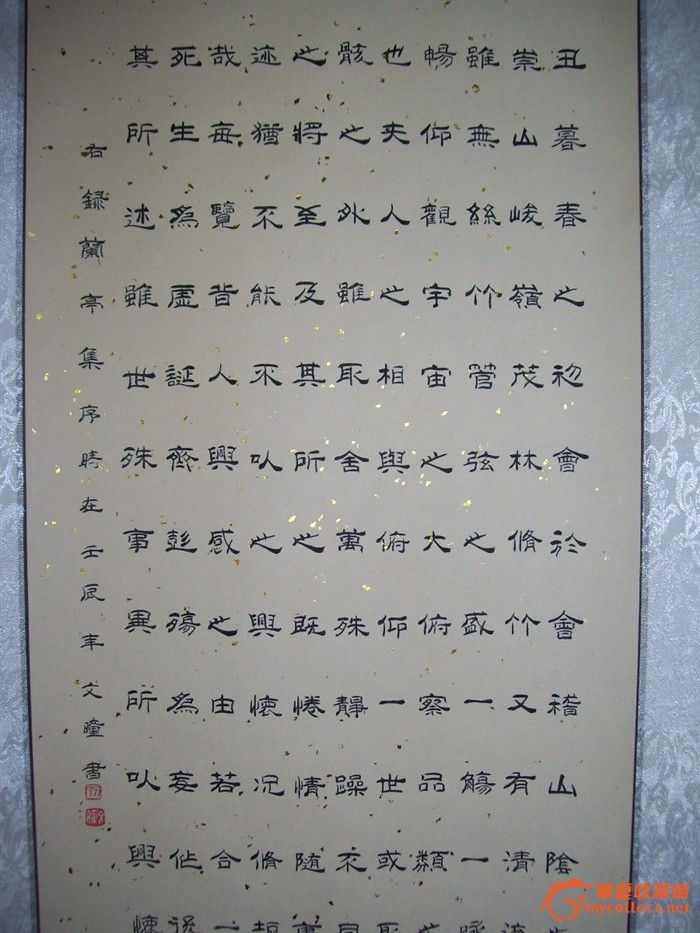 丑暮春之初會於會稽山陰之
崇山峻嶺茂林脩竹又有清流
雖無絲竹管弦之盛一觴一詠
暢仰觀宇宙之大俯察品類之
也夫人之相與俯仰一世或取
骸之外雖取舍萬殊靜躁不同
之將至及其所之既惓情隨事
迹猶不能不以之興懷況脩短
哉每覽昔人興感之由若合一
死生為虛誕齊彭殤為妄作後
其所述雖世殊事異所以興懷
右録蘭亭集序時在壬辰年文瞳書
華夏收藏網
mycollect.net